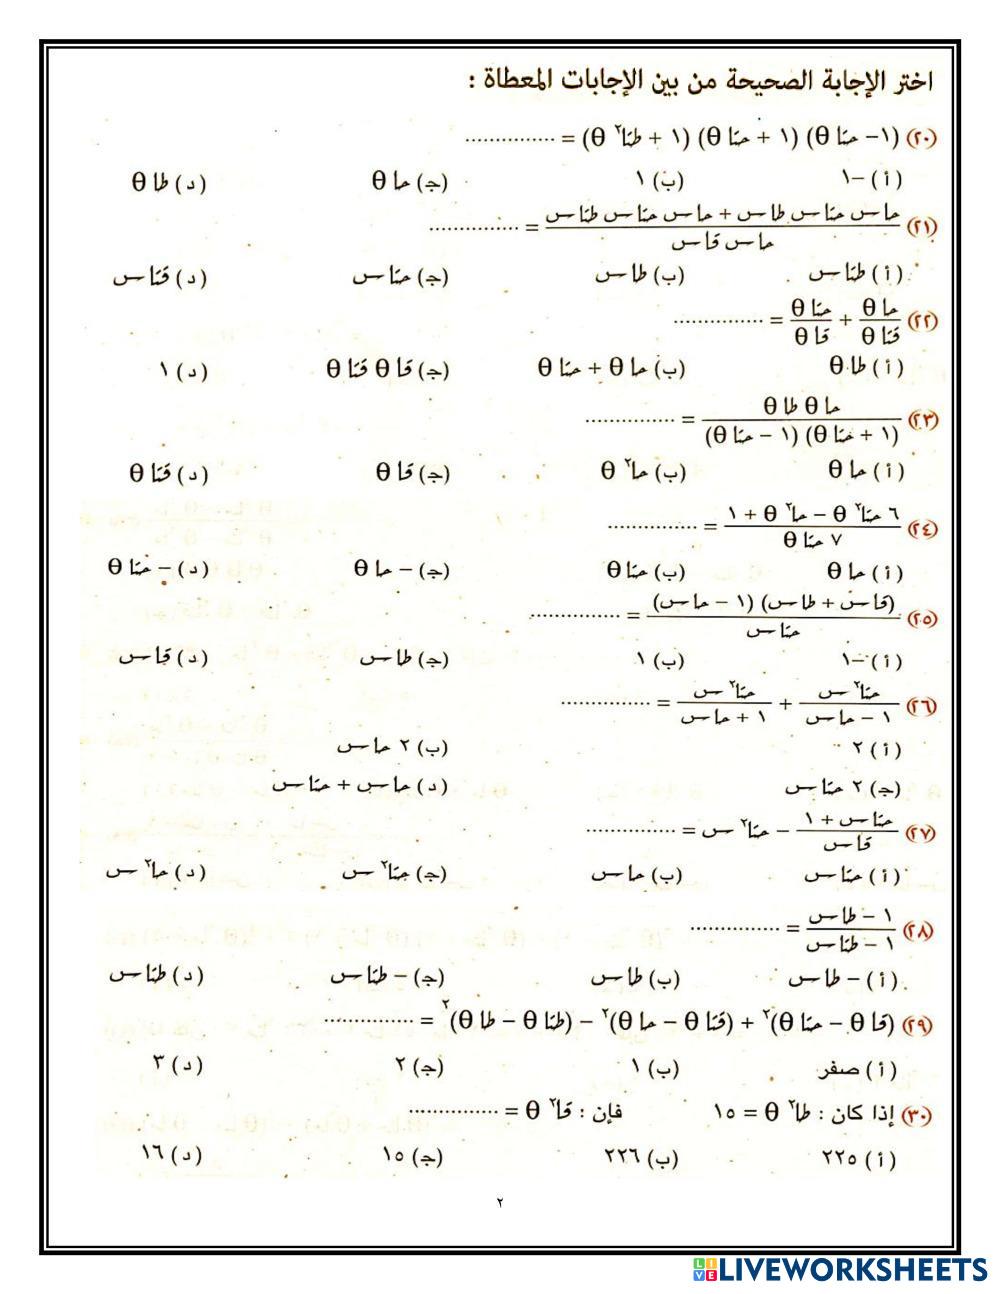 اختر الإجابة الصحيحة من بين الإجابات المعطاة :
(٢٠) (١ – حتا θ) (١ + حتا θ) (١ + طتا٢ θ) = ...............
(أ) –١ (ب) ١ (جـ) حا θ (د) طا θ
(٢١) حا س حتا س طا س + حا س حتا س طتا س / حا س قا س = ...............
(أ) طتا س (ب) طا س (جـ) حتا س (د) قتا س
(٢٢) حا θ / قتا θ + حتا θ / قا θ = ...............
(أ) طا θ (ب) حا θ + حتا θ (جـ) قا θ قتا θ (د) ١
(٢٣) حا θ طا θ / (١ + حتا θ) (١ – حتا θ) = ...............
(أ) حا θ (ب) حا٢ θ (جـ) قا θ (د) قتا θ
(٢٤) ٦ حتا٢ θ – حا٢ θ + ١ / ٧ حتا θ = ...............
(أ) حا θ (ب) حتا θ (جـ) – حا θ (د) – حتا θ
(٢٥) (قا س + طا س) (١ – حا س) / حتا س = ...............
(أ) –١ (ب) ١ (جـ) طا س (د) قا س
(٢٦) حتا٢ س / ١ – حا س + حتا٢ س / ١ + حا س = ...............
(أ) ٢ (ب) ٢ حا س
(جـ) ٢ حتا س (د) حا س + حتا س
(٢٧) حتا س + ١ / قا س – حتا٢ س = ...............
(أ) حتا س (ب) حا س (جـ) حتا٢ س (د) حا٢ س
(٢٨) ١ – طا س / ١ – طتا س = ...............
(أ) – طا س (ب) طا س (جـ) – طتا س (د) طتا س
(٢٩) (قا θ – حتا θ)٢ + (قتا θ – حا θ)٢ – (طتا θ – طا θ)٢ = ...............
(أ) صفر (ب) ١ (جـ) ٢ (د) ٣
(٣٠) إذا كان : طا٢ θ = ١٥ فإن : قا٢ θ = ...............
(أ) ٢٢٥ (ب) ٢٢٦ (جـ) ١٥ (د) ١٦
٢
LIVEWORKSHEETS